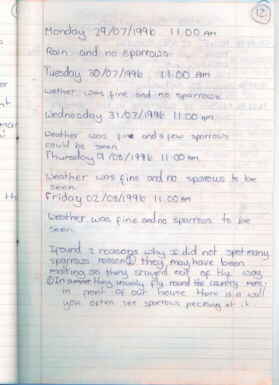 12
Monday 29/07/1996 11.00 AM
Rain and no sparrows.
Tuesday 30/07/1996 11.00 AM
Wether was fine and no sparrows.
Wednesday 31/07/1996 11.00 am
Weather was fine and a few sparrows
could be seen.
Thursday 01/08/1996 11.00 am.
Weather was fine and no sparows to be
seen.
Friday 02/08/1996 11.00 am
Weather was fine and no sparrows to be
seen.
I found 2 reasons why I did not spot many
sparrows reason ① they may have been
molting so they stayed out of the way
② In summer they usually fly round the country more.
in front of out house there is a wall
you often see sparrows pecking at it.